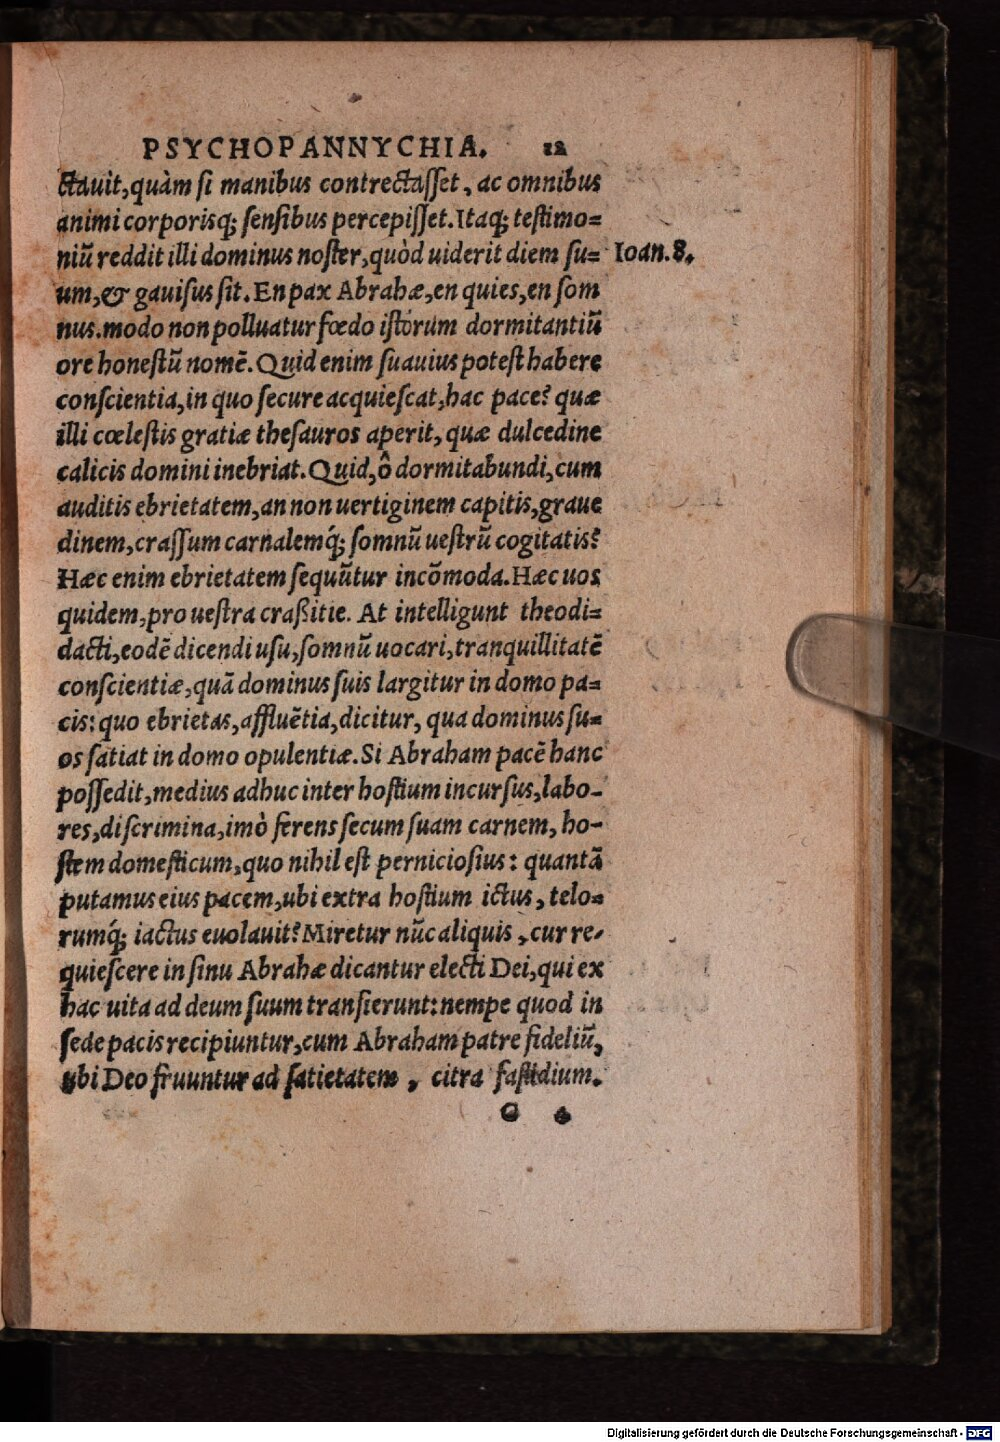 PSYCHOPANNYCHIA. 12
ctauit, quàm ſi manibus contrectaſſet, ac omnibus
animi corporisq; ſenſibus percepiſſet. Itaq; teſtimo=
niũ reddit illi dominus noſter, quòd uiderit diem ſu= Ioan. 8.
um, & gauiſus ſit. En pax Abrahæ, en quies, en ſom
nus. modo non polluatur fœdo iſtorum dormitantiũ
ore honeſtũ nomẽ. Quid enim ſuauius poteſt habere
conſcientia, in quo ſecure acquieſcat, hac pace? quæ
illi cœleſtis gratiæ theſauros aperit, quæ dulcedine
calicis domini inebriat. Quid, ô dormitabundi, cum
auditis ebrietatem, an non uertiginem capitis, graue
dinem, craſſum carnalemq́; ſomnũ ueſtrũ cogitatis?
Hæc enim ebrietatem ſequũtur incõmoda. Hæc uos
quidem, pro ueſtra craßitie. At intelligunt theodi=
dacti, eodẽ dicendi uſu, ſomnũ uocari, tranquillitatẽ
conſcientiæ, quã dominus ſuis largitur in domo pa=
cis: quo ebrietas, affluẽtia, dicitur, qua dominus ſu=
os ſatiat in domo opulentiæ. Si Abraham pacẽ hanc
poſſedit, medius adhuc inter hoſtium incurſus, labo-
res, diſcrimina, imò ferens ſecum ſuam carnem, ho-
ſtem domeſticum, quo nihil eſt pernicioſius: quantã
putamus eius pacem, ubi extra hoſtium ictus, telo=
rumq́; iactus euolauit? Miretur nũc aliquis, cur re-
quieſcere in ſinu Abrahæ dicantur electi Dei, qui ex
hac uita ad deum ſuum tranſierunt: nempe quod in
ſede pacis recipiuntur, cum Abraham patre fideliũ,
ubi Deo fruuntur ad ſatietatem, citra faſtidium.
C 4
Digitalisierung gefördert durch die Deutsche Forschungsgemeinschaft - DFG